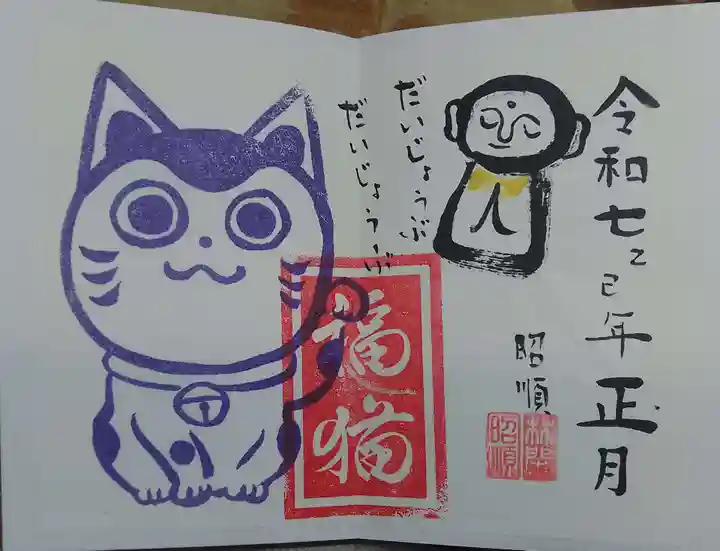 令和七乙巳年正月
昭順
林開
昭順
だいじょうぶ
だいじょうぶ
福猫